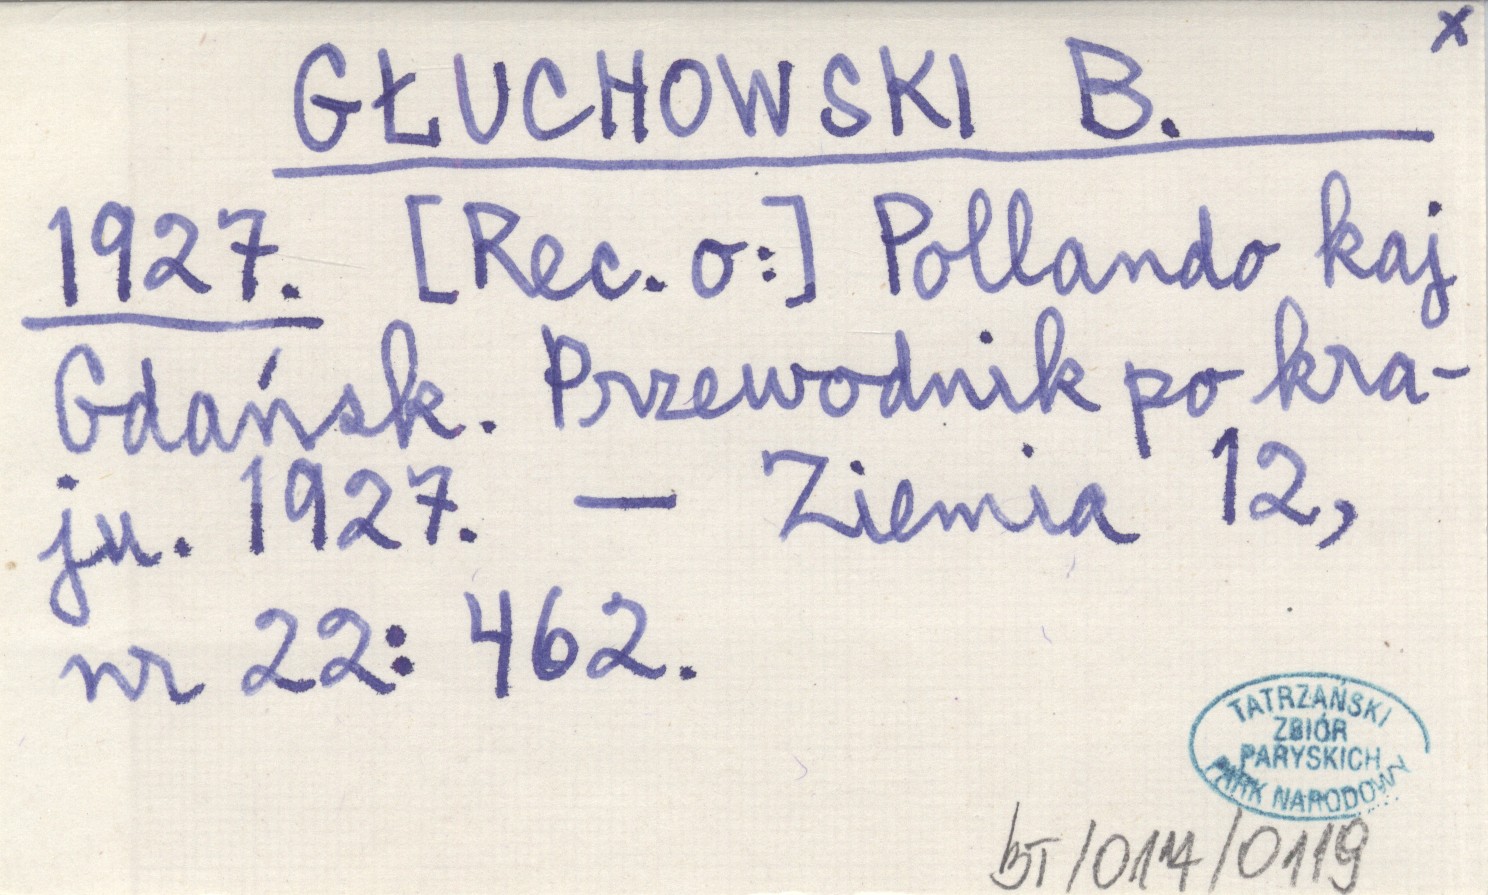 x
GŁUCHOWSKI B.
1927. [Rec. o:] Pollando kaj
Gdańsk. Przewodnik po kra-
ju. 1927. — Ziemia 12,
nr 22: 462.
TATRZAŃSKI
ZBIÓR
PARYSKICH
PARK NARODOWY
BT/014/0119